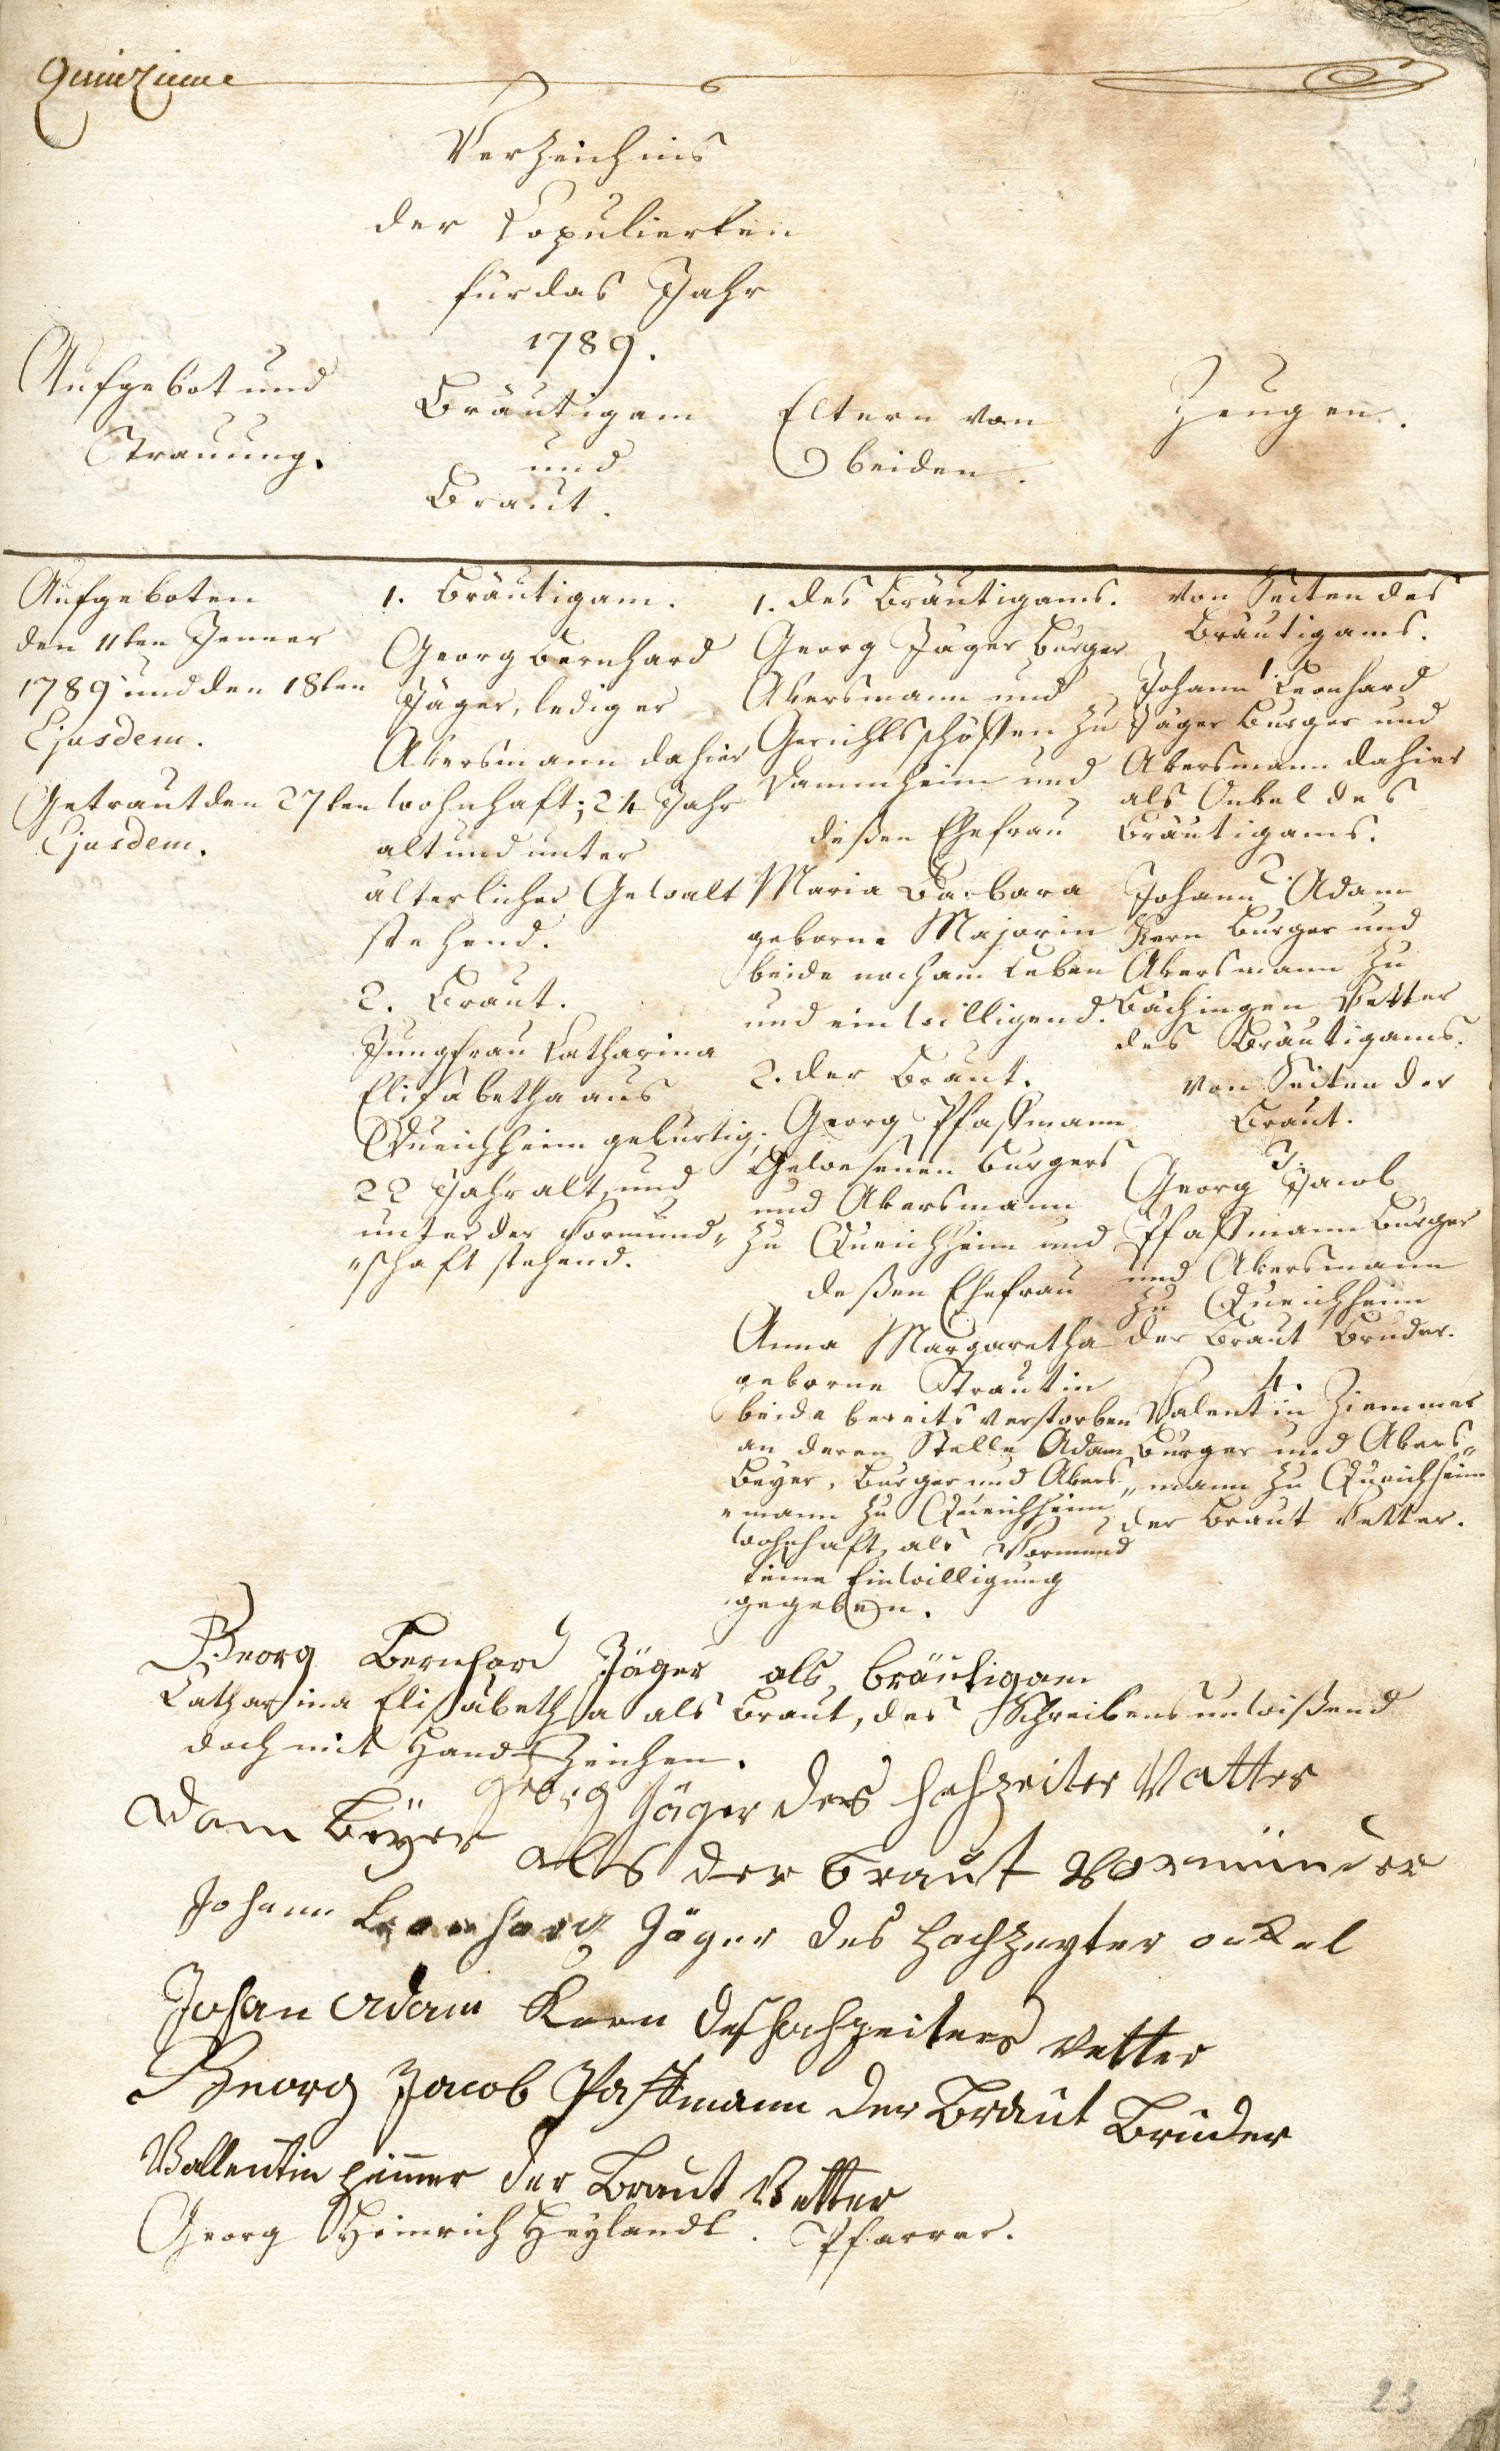 Quinzieme
Verzeichnis
der Copulierten
für das Jahr
1789.
Aufgebot und
Trauung.
Bräutigam
und
Braut.
Eltern von
beiden.
Zeugen.
Aufgeboten
den 11ten Jenner
1789 und den 18ten
Ejusdem.
Getraut den 27ten
Ejusdem.
1. Bräutigam.
Georg Bernhard
Jäger, lediger
Akersmann dahier
wohnhaft; 24 Jahr
alt und unter
älterlicher Gewalt
stehend.
2. Braut.
Jungfrau Catharina
Elisabetha aus
Queichheim gebürtig,
22 Jahr alt, und
unter der Vormund„
„schaft stehend.
1. des Bräutigams.
Georg Jäger Burger
Akersmann und
Gerichtsschöffen zu
Dammheim und
deßen Ehefrau
Maria Barbara
geborne Majorin
beide noch am Leben
und einwilligend.
2. der Braut.
Georg Pfaffmann
Gewesenen Burgers
und Akersmann
zu Queichheim und
deßen Ehefrau
Anna Margaretha
geborne Trautin
beide bereits verstorben
an deren Stelle Adam
Beyer, Burger und Akers„
„mann zu Queichheim
wohnhaft, als Vormund
seine Einwilligung
gegeben.
Von Seiten des
Bräutigams.
1.
Johann Leonhard
Jäger Burger und
Akersmann dahier
als Onkel des
Bräutigams.
2.
Johann Adam
Kern Burger und
Akersmann zu
Böchingen Vetter
des Bräutigams.
Von Seiten der
Braut.
3.
Georg Jacob
Pfaffmann Burger
und Akersmann
zu Queichheim
der Braut Bruder.
4.
Valentin Ziemmer
Burger und Akers„
„mann zu Queichheim
der Braut Vetter.
Georg Bernhard Jäger als bräutigam
Catharina Elisabetha als Braut, des Schreibens unwißend
doch mit Hand-Zeichen.
Georg Jäger des hochzeiter Vatter
adam Beyer als der braut Vormünder
Johann Leonhard Jäger des hochzeyter onkel
Johan Adam Kern des hochzeiters Vetter
Georg Jacob Pfaffmann der Braut Bruder
Vallentin zimer der Braut Vetter
Georg Heinrich Heylandt. Pfarrer.
23